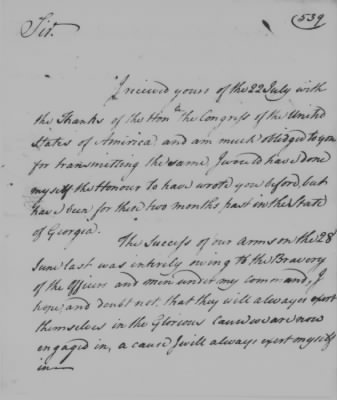 (539
Sir.
I received yours of the 22 July with
the Thanks of the Honble the Congress of the United
States of America and am much obliged to you
for transmitting the same, I would have done
myself the Honour to have wrote you before, but
have been for these two months past in the State
of Georgia.
The Success of our Arms on the 28
June last was intirely owing to the Bravery
of the Officers and men under my command, I
hope, and doubt not, that they will always exert
themselves in the Glorious Cause we are now
engaged in, a cause I will always exert myself
in—